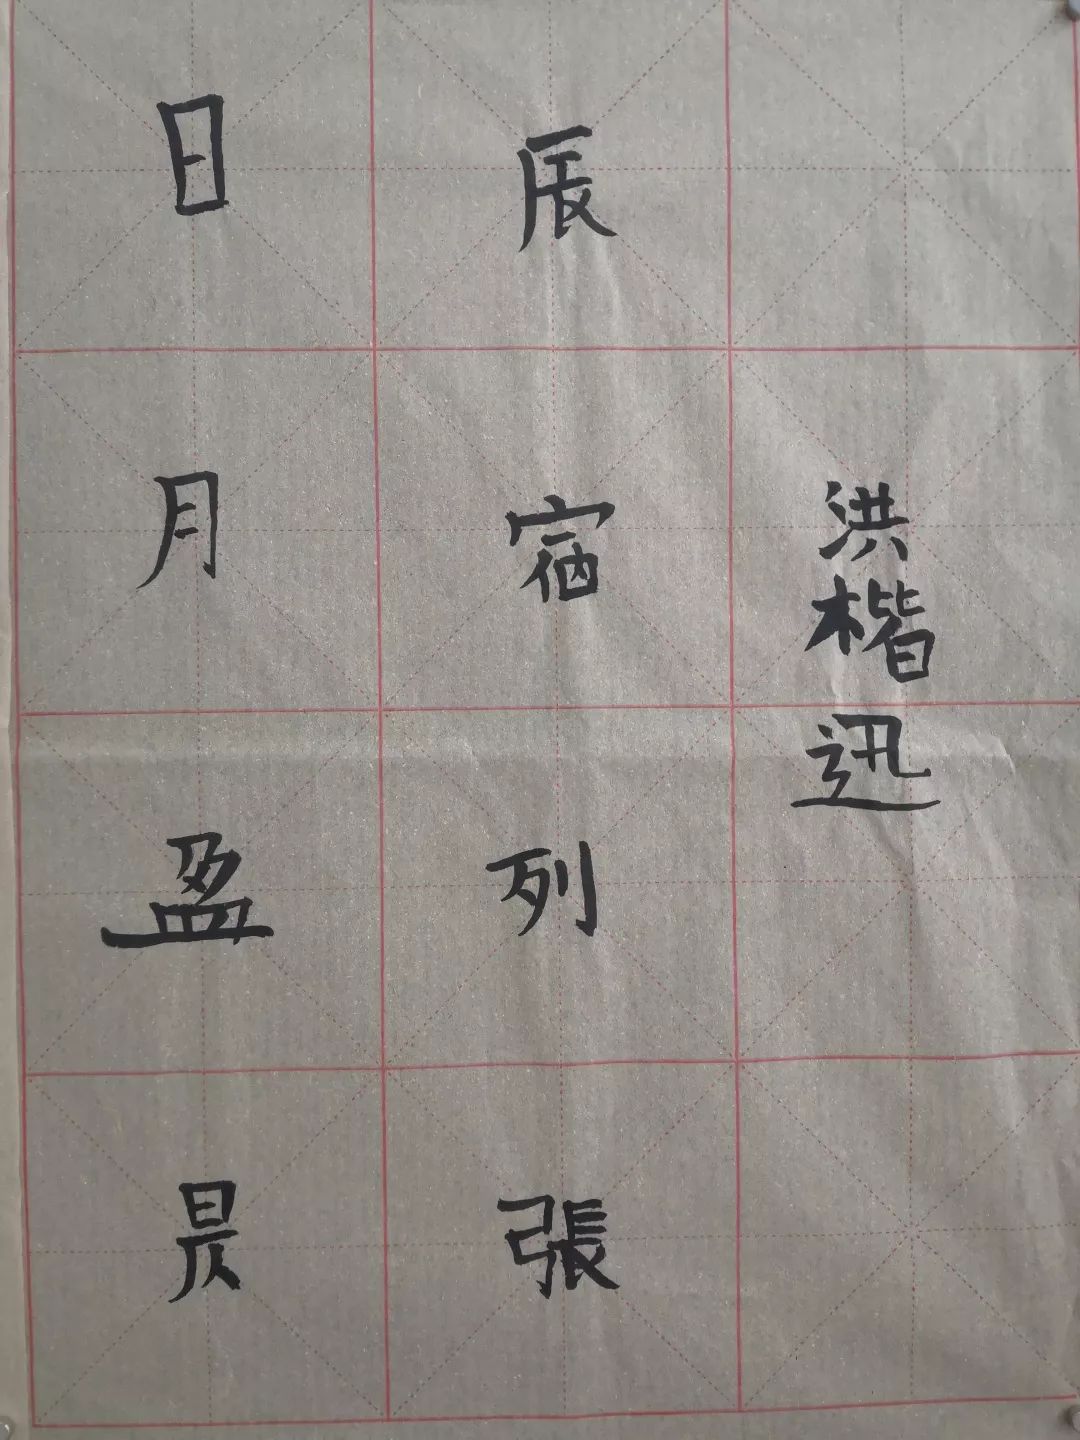 日月盈昃
辰宿列張
洪楷迅